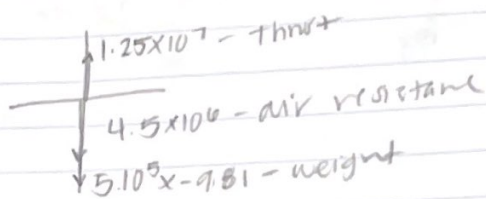 1.25×10⁷ - Thrust
4.5×10⁶ - air resistance
5.10⁵x-9.81 - weight